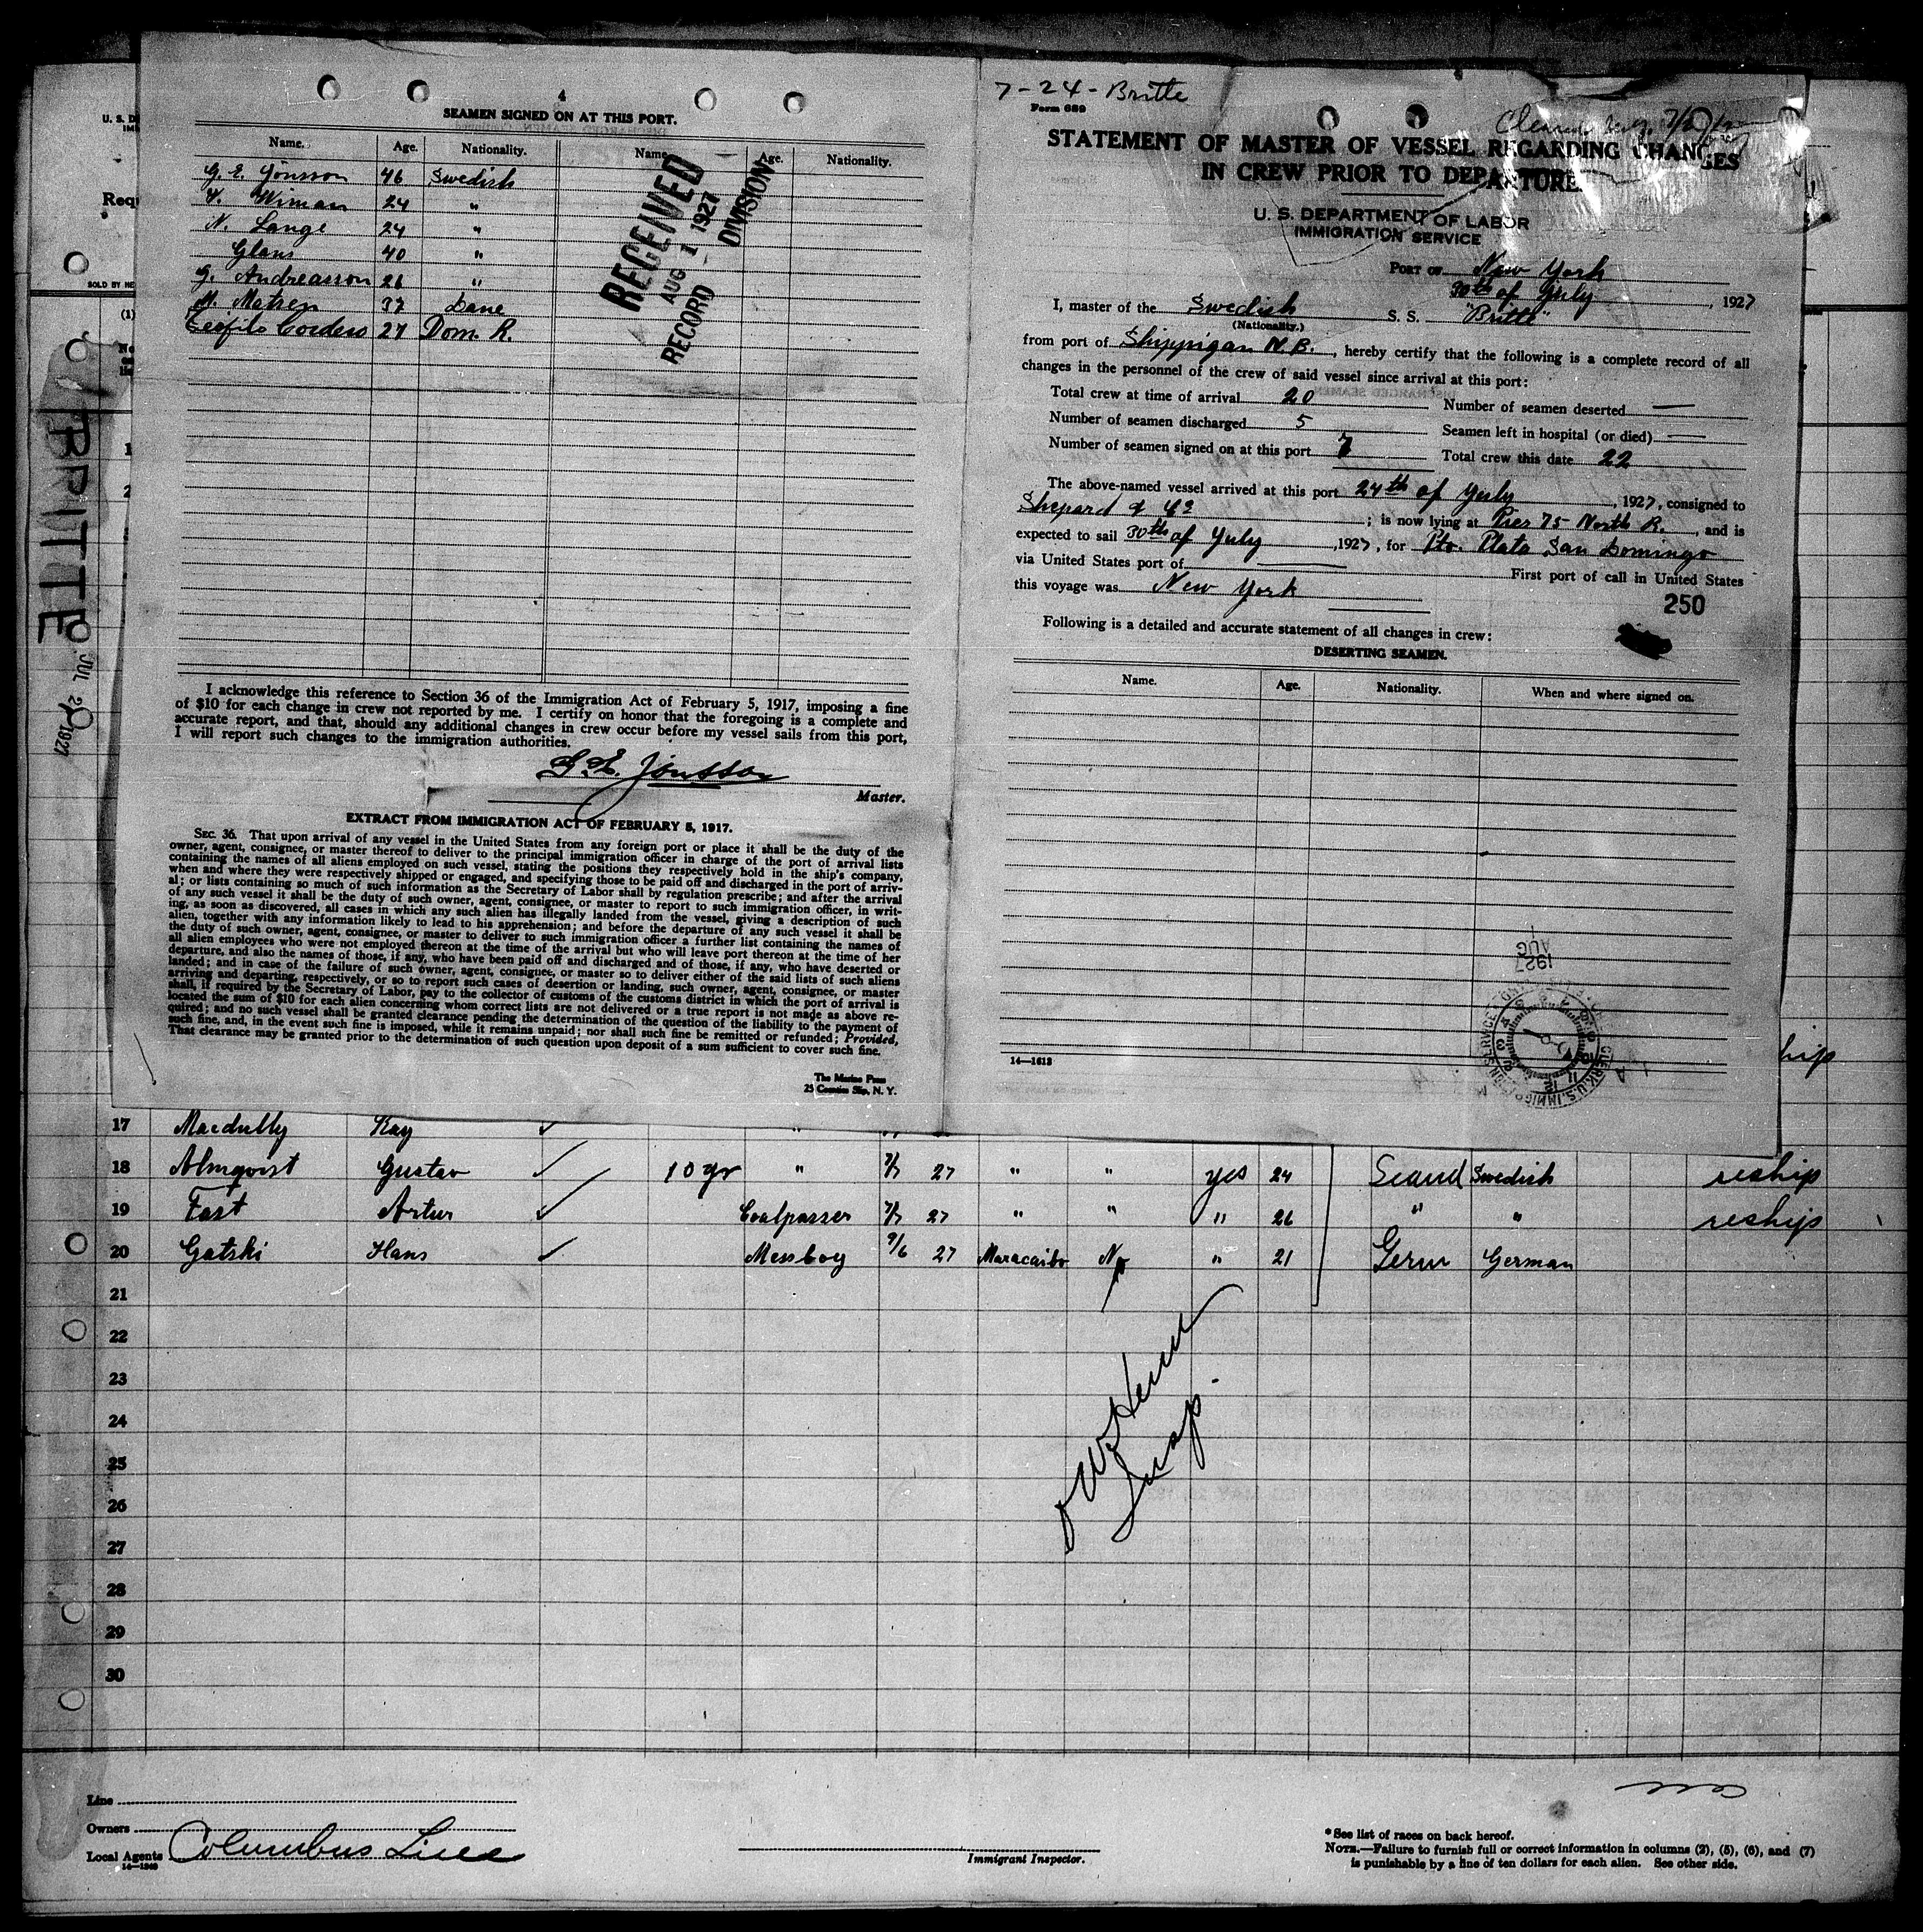 4
SEAMEN SIGNED ON AT THIS PORT.
Name. Age. Nationality. Name. Age. Nationality.
G. E. Jönsson 46 Swedish
Wiman 24 "
N. Lange 24 "
Glans 40 "
G. Andreasson 26 "
M. Matsen 37 Dane
Teofilo Cordero 27 Dom. R.
RECEIVED
AUG 1 1927
RECORD DIVISION
I acknowledge this reference to Section 36 of the Immigration Act of February 5, 1917, imposing a fine
of $10 for each change in crew not reported by me. I certify on honor that the foregoing is a complete and
accurate report, and that, should any additional changes in crew occur before my vessel sails from this port,
I will report such changes to the immigration authorities.
G. E. Jönsson
Master.
EXTRACT FROM IMMIGRATION ACT OF FEBRUARY 5, 1917.
SEC. 36. That upon arrival of any vessel in the United States from any foreign port or place it shall be the duty of the
owner, agent, consignee, or master thereof to deliver to the principal immigration officer in charge of the port of arrival lists
containing the names of all aliens employed on such vessel, stating the positions they respectively hold in the ship's company,
when and where they were respectively shipped or engaged, and specifying those to be paid off and discharged in the port of arriv-
al; or lists containing so much of such information as the Secretary of Labor shall by regulation prescribe; and after the arrival
of any such vessel it shall be the duty of such owner, agent, consignee, or master to report to such immigration officer, in writ-
ing, as soon as discovered, all cases in which any such alien has illegally landed from the vessel, giving a description of such
alien, together with any information likely to lead to his apprehension; and before the departure of any such vessel it shall be
the duty of such owner, agent, consignee, or master to deliver to such immigration officer a further list containing the names of
all alien employees who were not employed thereon at the time of the arrival but who will leave port thereon at the time of her
departure, and also the names of those, if any, who have been paid off and discharged and of those, if any, who have deserted or
landed; and in case of the failure of such owner, agent, consignee, or master so to deliver either of the said lists of such aliens
arriving and departing, respectively, or so to report such cases of desertion or landing, such owner, agent, consignee, or master
shall, if required by the Secretary of Labor, pay to the collector of customs of the customs district in which the port of arrival is
located the sum of $10 for each alien concerning whom correct lists are not delivered or a true report is not made as above re-
quired; and no such vessel shall be granted clearance pending the determination of the question of the liability to the payment of
such fine, and, in the event such fine is imposed, while it remains unpaid; nor shall such fine be remitted or refunded; Provided,
That clearance may be granted prior to the determination of such question upon deposit of a sum sufficient to cover such fine.
The Marine Press
25 Coenties Slip, N. Y.
7-24-Britte
Form 689
STATEMENT OF MASTER OF VESSEL REGARDING CHANGES
IN CREW PRIOR TO DEPARTURE
U. S. DEPARTMENT OF LABOR
IMMIGRATION SERVICE
PORT OF New York
30th of July, 1927
I, master of the Swedish S. S. "Britte"
(Nationality.)
from port of Shippigan N.B., hereby certify that the following is a complete record of all
changes in the personnel of the crew of said vessel since arrival at this port:
Total crew at time of arrival 20 Number of seamen deserted —
Number of seamen discharged 5 Seamen left in hospital (or died) —
Number of seamen signed on at this port 7 Total crew this date 22
The above-named vessel arrived at this port 24th of July, 1927, consigned to
Shepard & Co ; is now lying at Pier 75 North R., and is
expected to sail 30th of July, 1927, for Pto. Plata San Domingo
via United States port of — First port of call in United States
this voyage was New York
250
Following is a detailed and accurate statement of all changes in crew:
DESERTING SEAMEN.
Name. Age. Nationality. When and where signed on.
AUG 1
1927
14—1613
BRITTE
JUL 2 1927
U. S. D
Requ
SOLD BY HE
(1)
1
2
hip
17 Macdubly Kay "
18 Almqvist Gustav 10 yr " 7/7 27 " " yes 24 Scand Swedish reship
19 Fast Artur Coalpasser 7/7 27 " " " 26 " " reship
20 Gatski Hans Messboy 9/6 27 Maracaibo No " 21 Germ German
21
22
23
24
25
26
27
28
29
30
Insp.
Line
Owners
Local Agents Columbus Line
14—1240
Immigrant Inspector.
* See list of races on back hereof.
NOTE.—Failure to furnish full or correct information in columns (2), (5), (6), and (7)
is punishable by a fine of ten dollars for each alien. See other side.